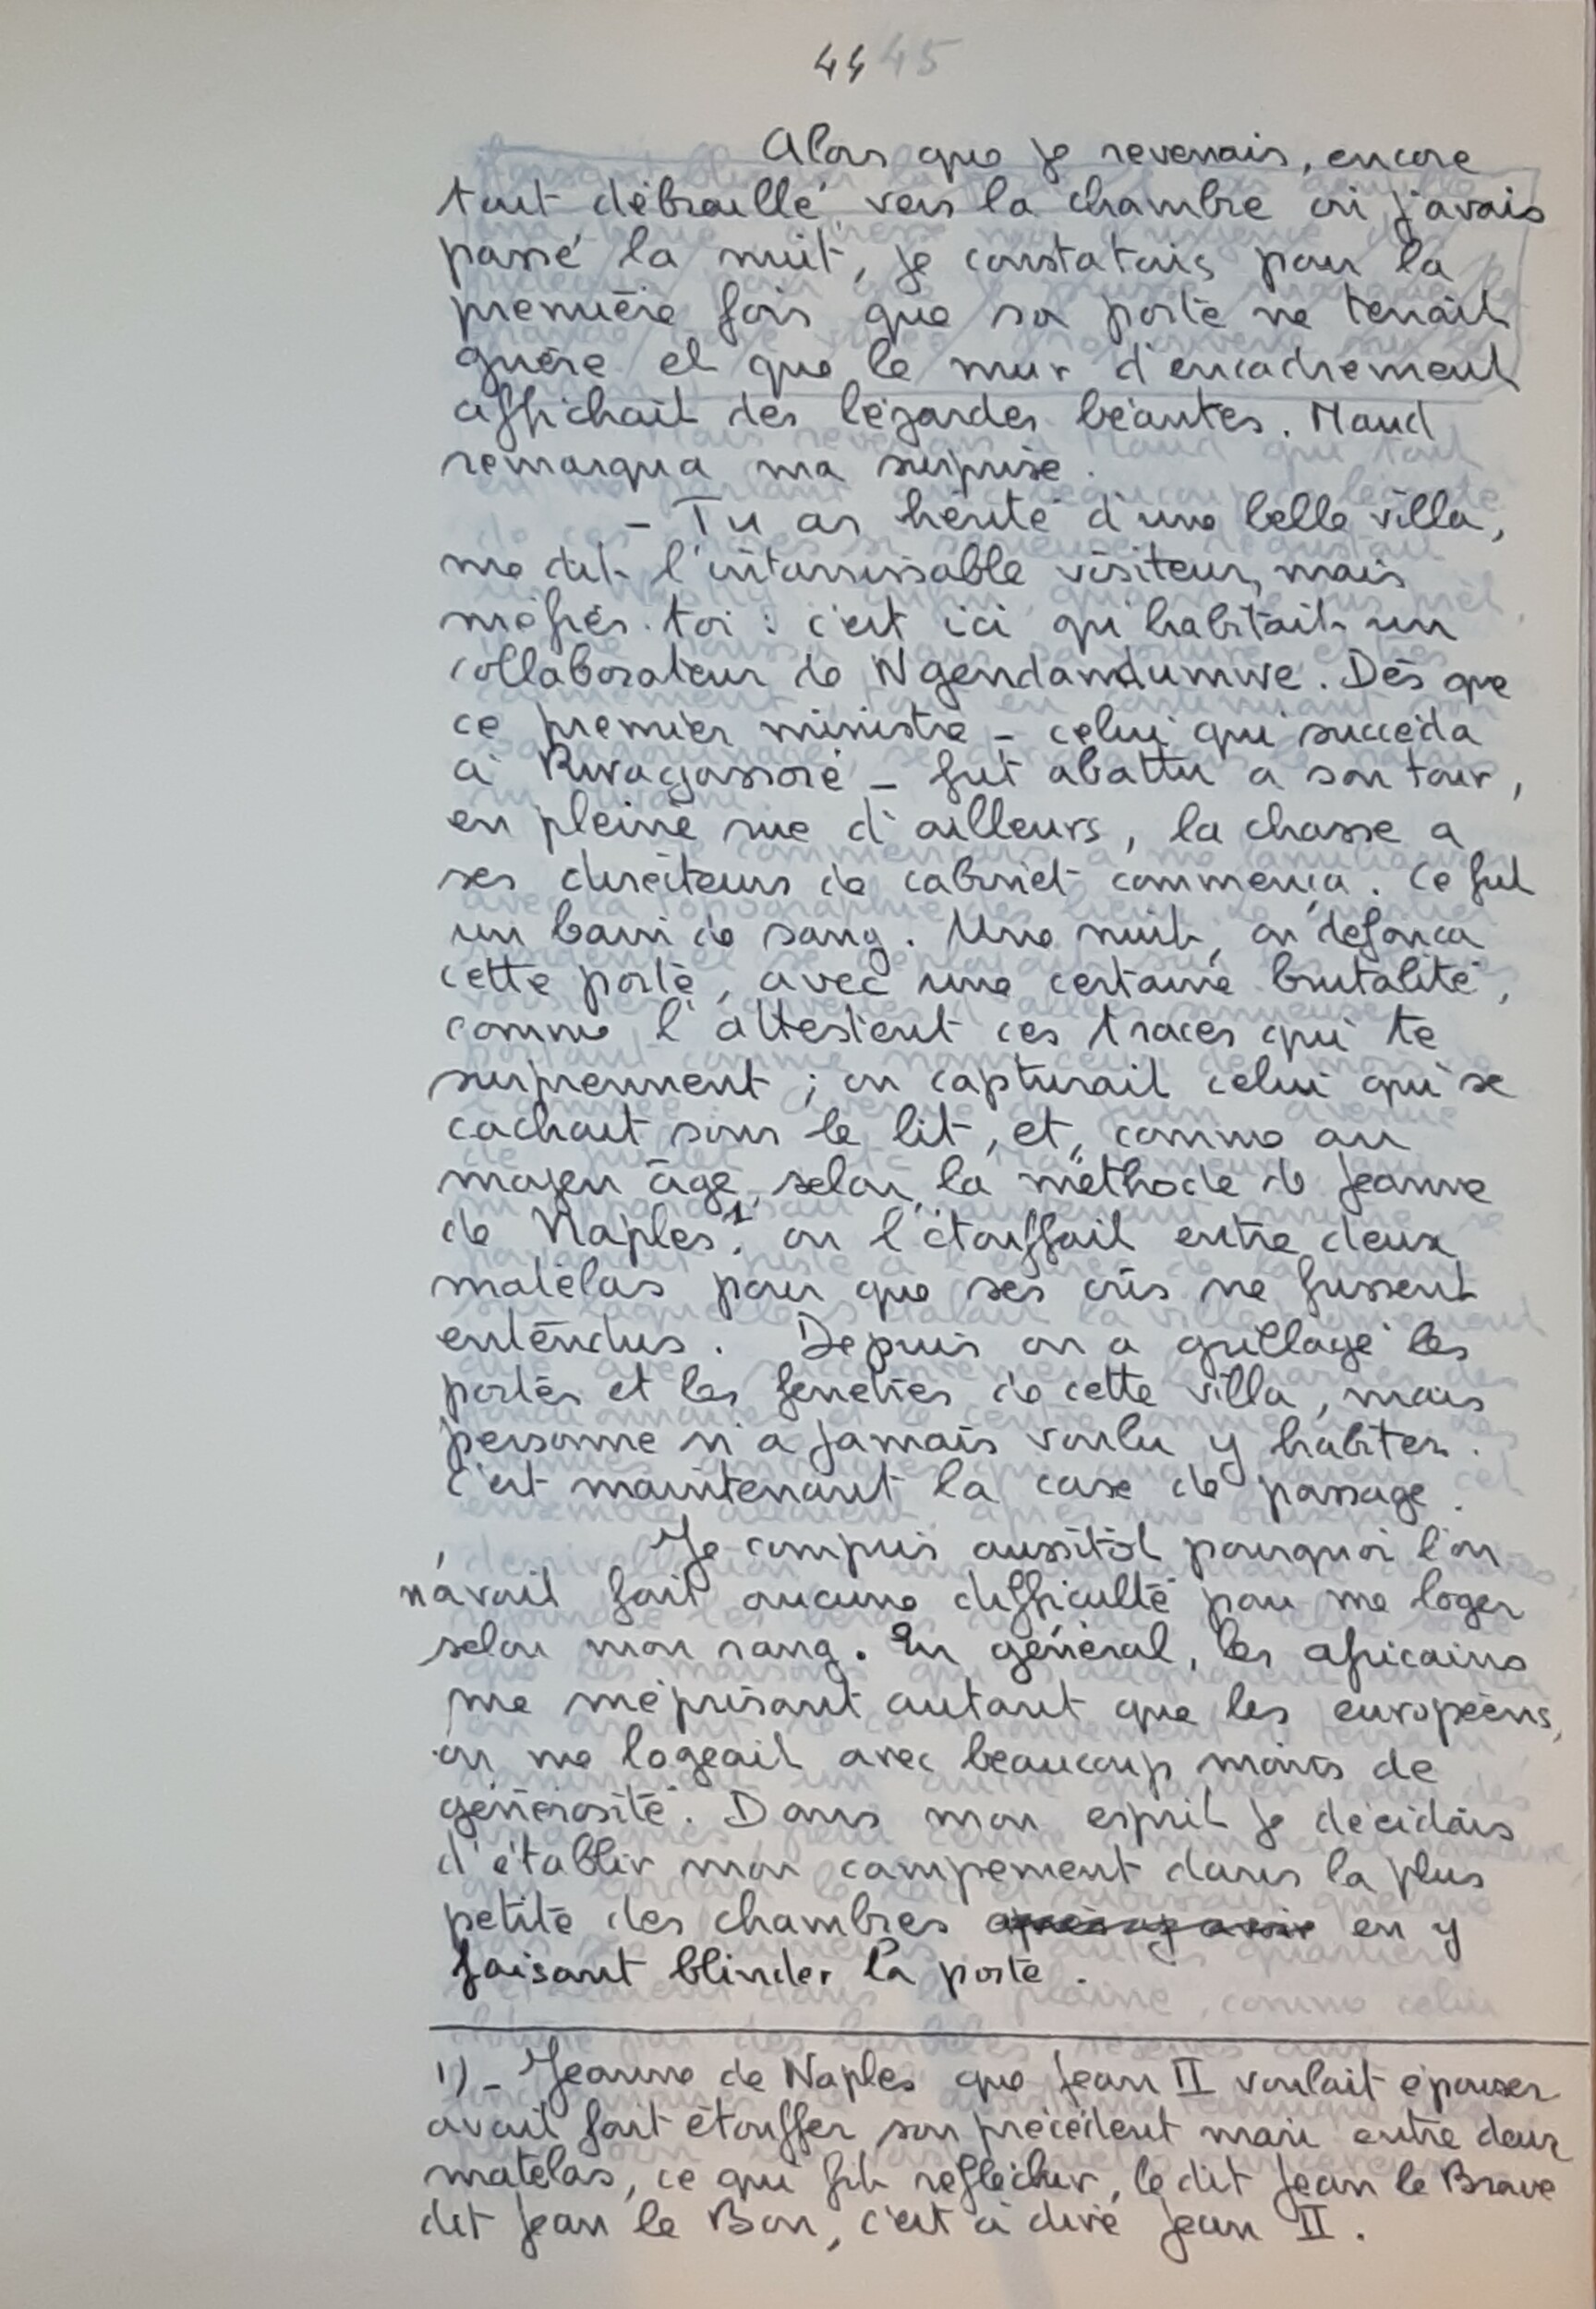 44 45
Alors que je revenais, encore
tout débraillé vers la chambre où j'avais
passé la nuit, je constatais pour la
première fois que sa porte ne tenait
guère et que le mur d'encadrement
affichait des lézardes béantes. Maud
remarqua ma surprise.
- Tu as hérité d'une belle villa,
me dit l'intarissable visiteur, mais
méfies-toi : c'est ici qu'habitait un
collaborateur de Ngendandumwe. Dès que
ce premier ministre - celui qui succéda
à Rwagassoré - fut abattu à son tour,
en pleine rue d'ailleurs, la chasse a
ses directeurs de cabinet commença. Ce fut
un bain de sang. Une nuit, on défonca
cette porte, avec une certaine brutalité,
comme l'attestent ces traces qui te
surprennent ; on capturait celui qui se
cachait sous le lit, et, comme au
moyen âge, selon la méthode de Jeanne
de Naples¹, on l'étouffait entre deux
matelas pour que ses cris ne fussent
entendus. Depuis on a grillagé les
portes et les fenêtres de cette villa, mais
personne n'a jamais voulu y habiter.
C'est maintenant la case de passage.
Je compris aussitôt pourquoi l'on
n'avait fait aucune difficulté pour me loger
selon mon rang. En général, les africains
me méprisant autant que les européens,
on me logeait avec beaucoup moins de
générosité. Dans mon esprit je décidais
d'établir mon campement dans la plus
petite des chambres en y
faisant blinder la porte.
1) - Jeanne de Naples que Jean II voulait épouser
avait fait étouffer son précédent mari entre deux
matelas, ce qui fit réfléchir, le dit Jean le Brave
dit Jean le Bon, c'est à dire Jean II.